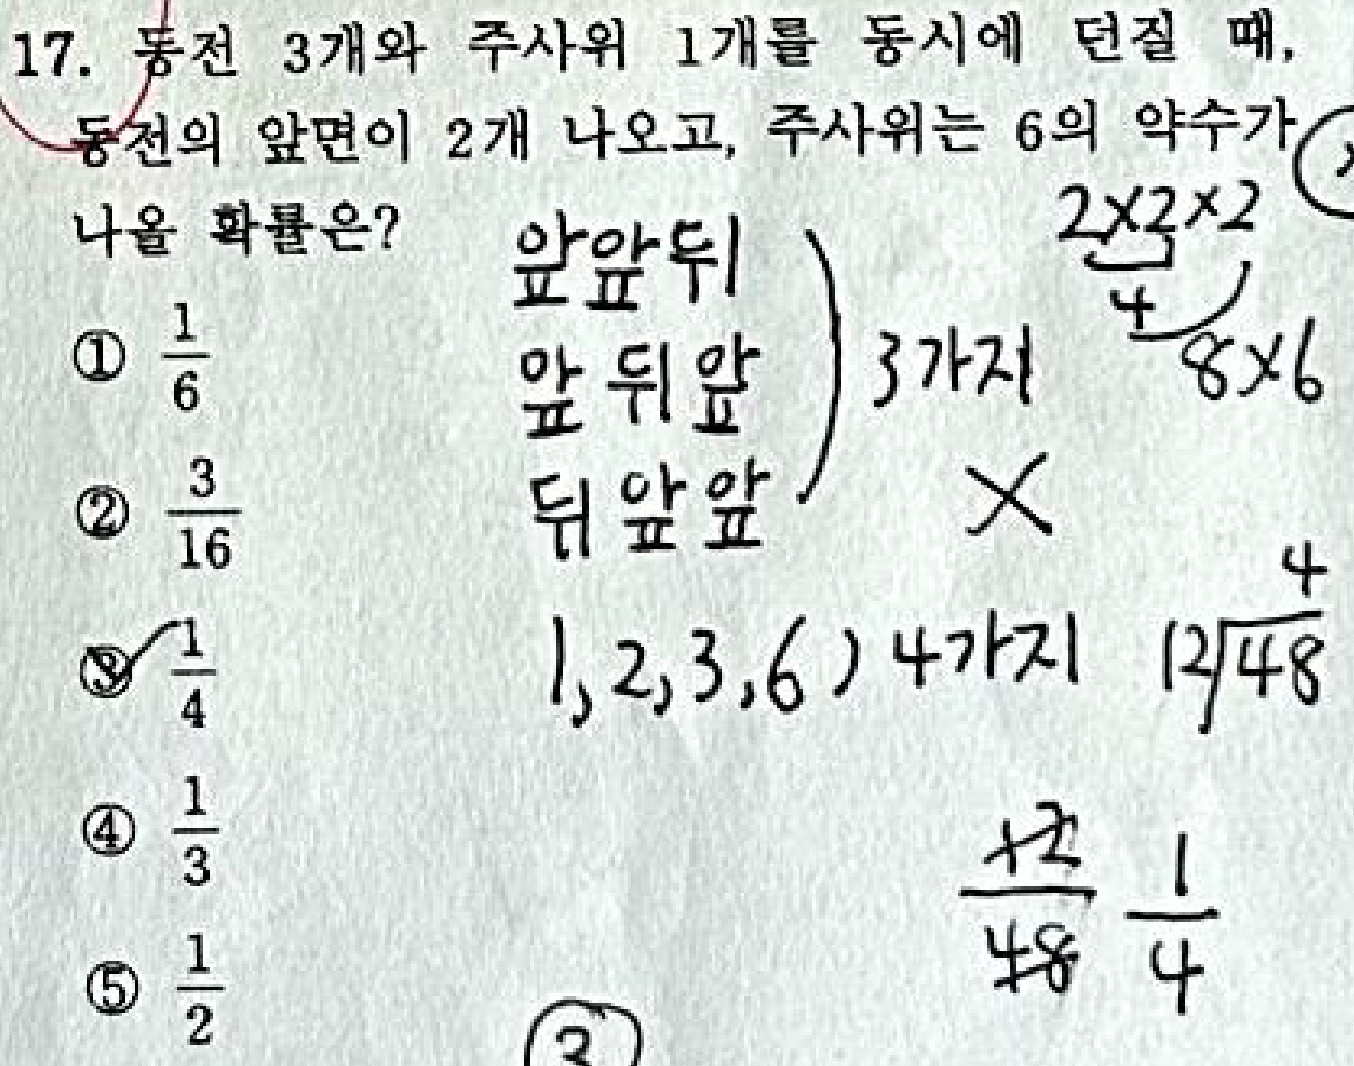 17. 동전 3개와 주사위 1개를 동시에 던질 때,
동전의 앞면이 2개 나오고, 주사위는 6의 약수가
나올 확률은?
2×2×2
4
8×6
앞앞뒤
앞뒤앞
뒤앞앞
3가지
×
1, 2, 3, 6) 4가지
4
12)48
12/48 1/4
① 1/6
② 3/16
③ 1/4
④ 1/3
⑤ 1/2
③